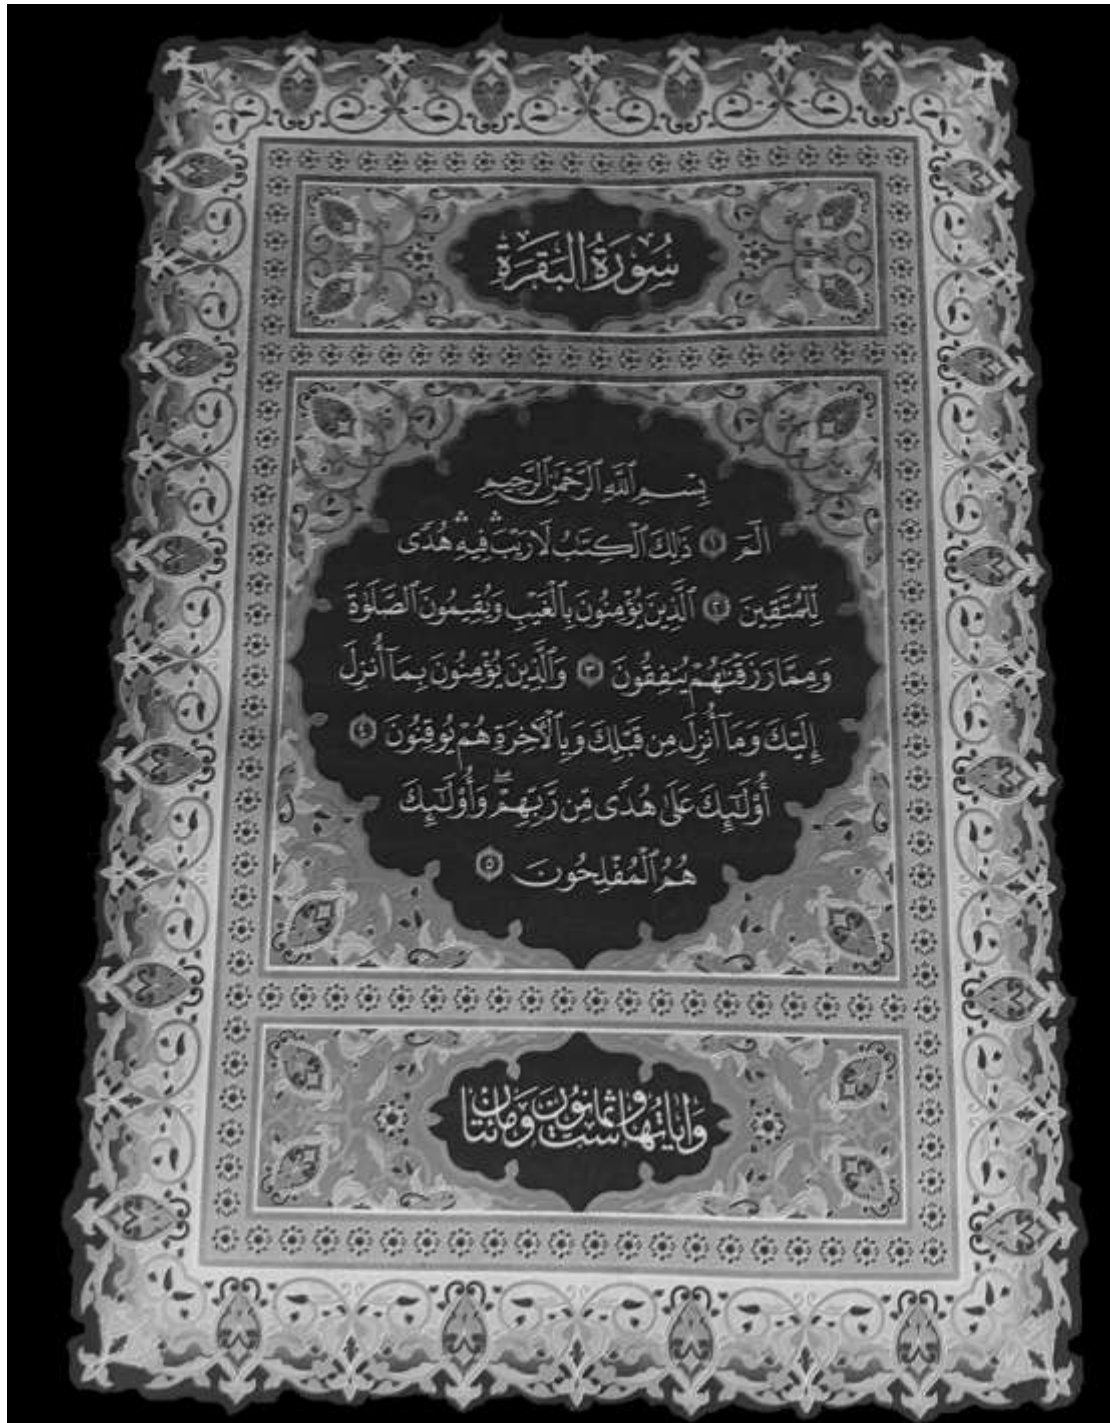 سُورَةُ البَقَرَةِ
بِسْمِ ٱللَّهِ ٱلرَّحْمَٰنِ ٱلرَّحِيمِ
الٓمٓ ١ ذَٰلِكَ ٱلْكِتَٰبُ لَا رَيْبَ ۛ فِيهِ ۛ هُدًى
لِّلْمُتَّقِينَ ٢ ٱلَّذِينَ يُؤْمِنُونَ بِٱلْغَيْبِ وَيُقِيمُونَ ٱلصَّلَوٰةَ
وَمِمَّا رَزَقْنَٰهُمْ يُنفِقُونَ ٣ وَٱلَّذِينَ يُؤْمِنُونَ بِمَآ أُنزِلَ
إِلَيْكَ وَمَآ أُنزِلَ مِن قَبْلِكَ وَبِٱلْءَاخِرَةِ هُمْ يُوقِنُونَ ٤
أُو۟لَٰٓئِكَ عَلَىٰ هُدًى مِّن رَّبِّهِمْ ۖ وَأُو۟لَٰٓئِكَ
هُمُ ٱلْمُفْلِحُونَ ٥
وَآيَاتُهَا سِتٌّ وَثَمَانُونَ وَمَائَتَانِ